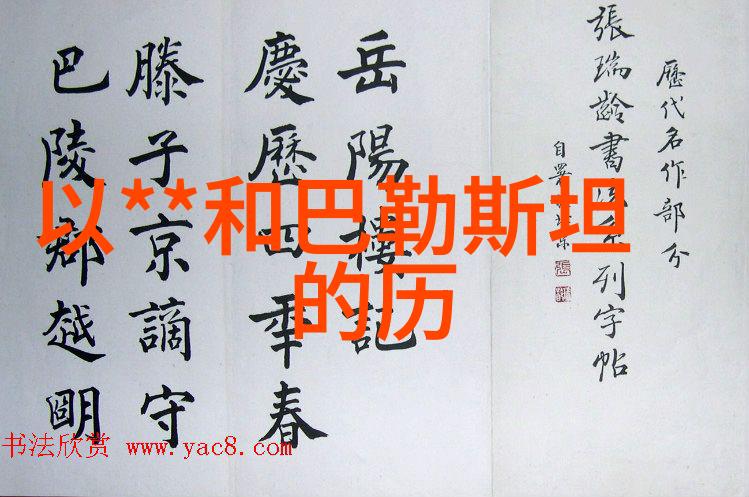 歷代名作部分
張瑞齡書法系列字帖
自署
岳陽樓記
慶歷四年春
滕子京謫守
巴陵郡越明
以**和巴勒斯坦
的历
书法欣赏 www.yac8.com